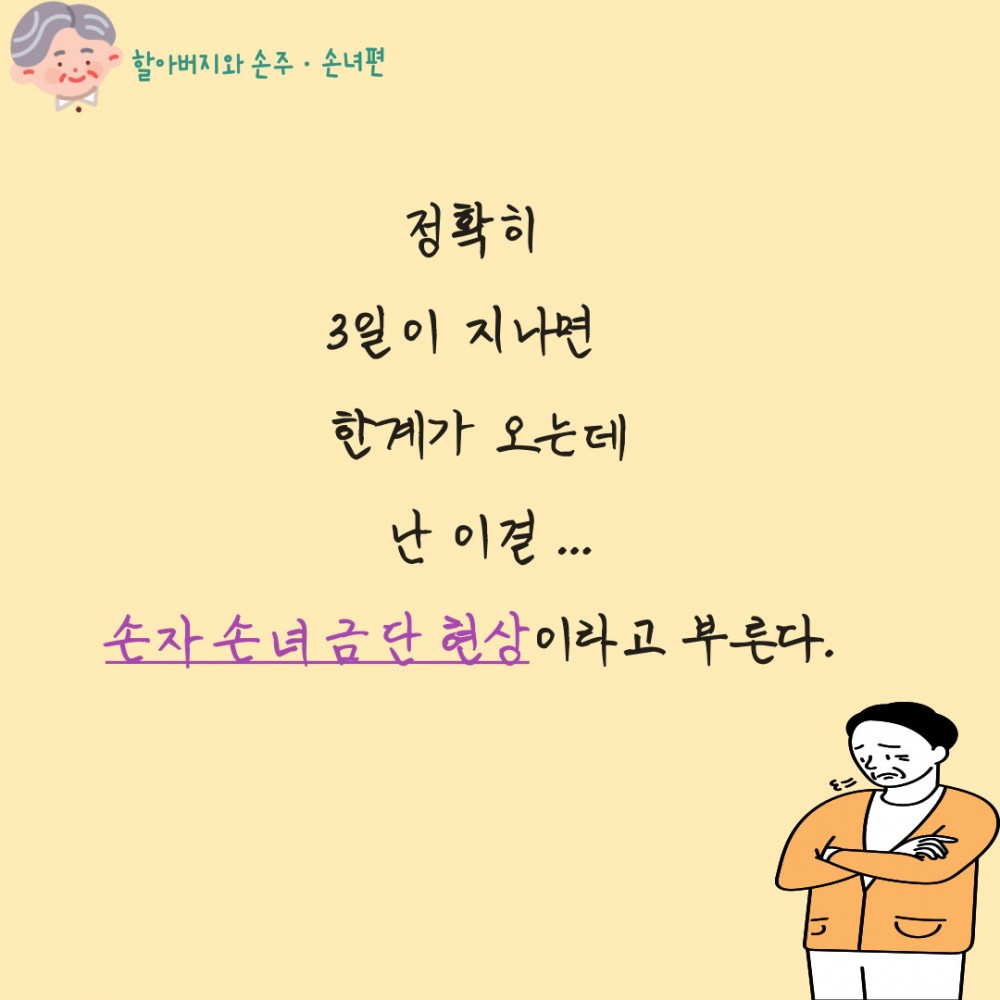 할아버지와 손주 · 손녀편
정확히
3일이 지나면
한계가 오는데
난 이걸 ...
손자 손녀 금단 현상이라고 부른다.